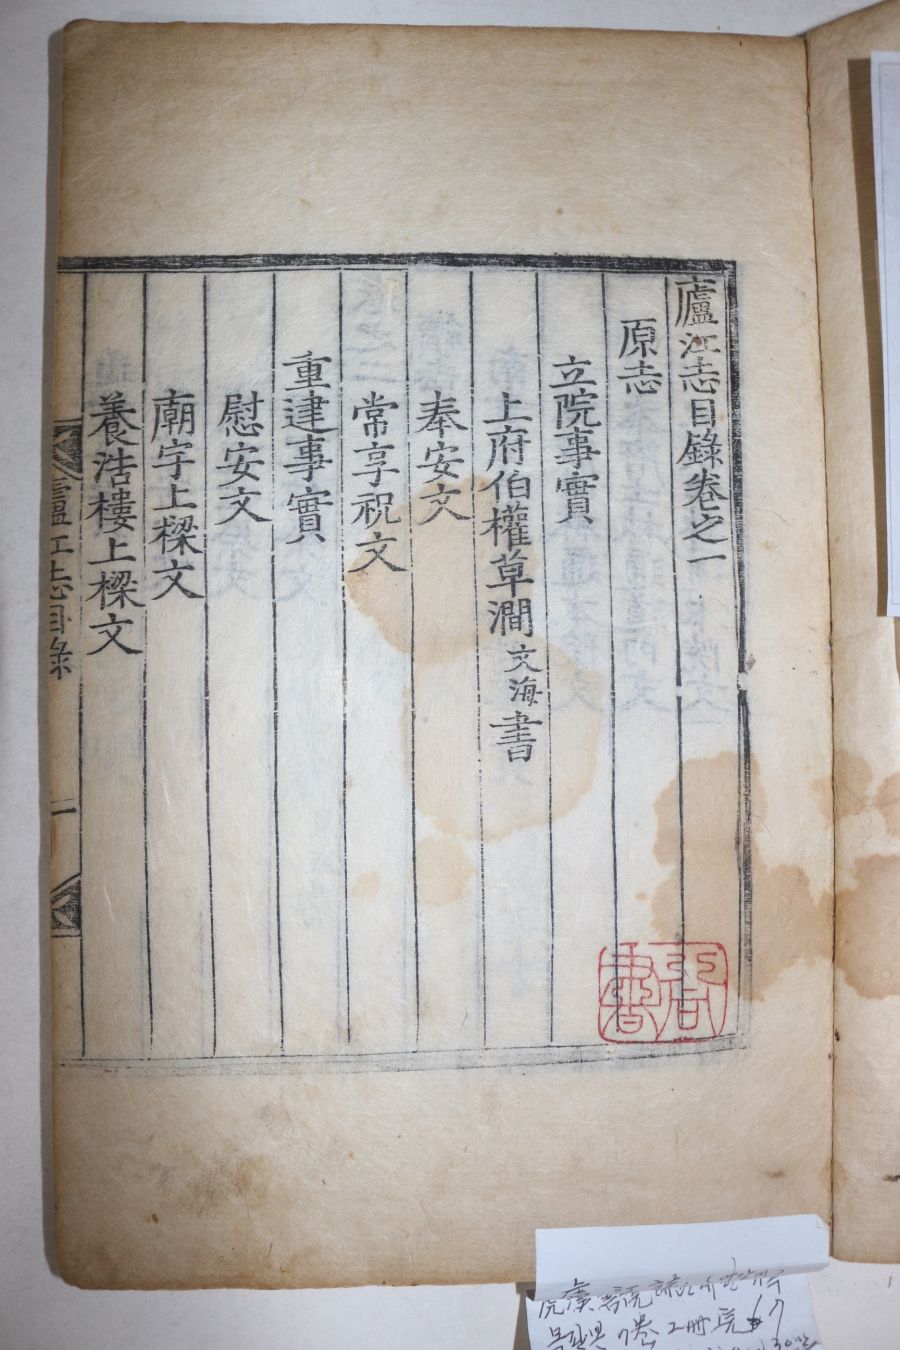 廬江志目錄卷之一
原志
立院事實
上府伯權草澗文海書
奉安文
常享祝文
重建事實
慰安文
廟宇上樑文
養浩樓上樑文
廬江志目錄
一